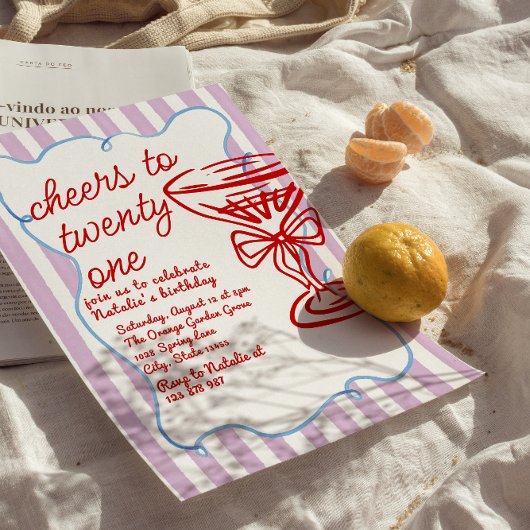 CARTA DO CEO
-vindo ao nos
UNIVER
cheers to
twenty
one
join us to celebrate
Natalie's birthday
Saturday, August 12 at 8pm
The Orange Garden Grove
1028 Spring lane
City, State 13455
Rsvp to Natalie at
123 878 987